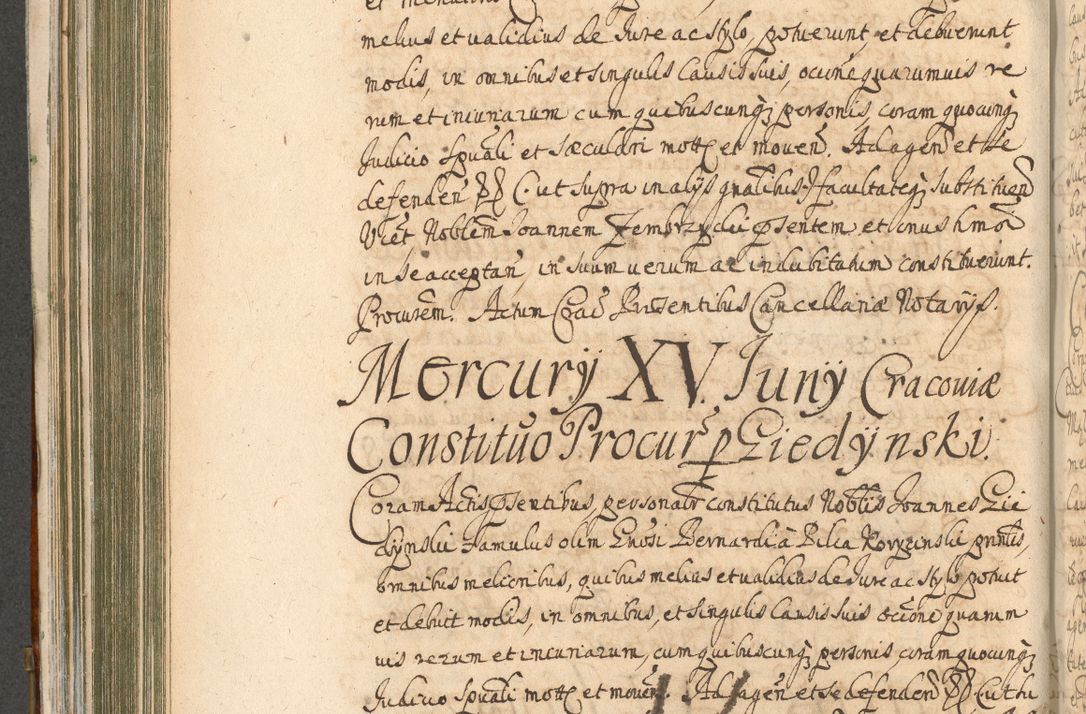 melius et validius de Jure ac stylo, potuerunt, et debuerunt
modis, in omnibus et singulis Causis suis, occne quarumuis re
rum et iniuriarum cum quibuscunq; personis, coram quocunq;
Judicio Spuali et sæculari mott et mouen. Ad agen et se
defenden Cut supra in alijs gnalibus facultateq; substituen
Viet Noblem Joannem Zembrzydu psentem et onus hmoi
in se acceptan in suum uerum ac indubitatum constituerunt.
Procurem. Actum Crac Præsentibus Cancellariæ Notarijs.
Mercurÿ XV. Junÿ Cracouiæ
Constituo Procurs p Giedÿnski.
Coram Actis psentibus, personalr constitutus Noblis Joannes Gie
dÿnski Famulus olim Gnosi Bernardi à Pilca Korÿcinski
omnibus melioribus, quibus melius et validius de Jure ac stylo potuit
et debuit modis, in omnibus, et singulis Causis suis occione quarum
uis rerum et iniuriarum, cum quibuscunq; personis, coram quocunq;
Judicio Spuali mott et mouen. Ad agen et se defenden